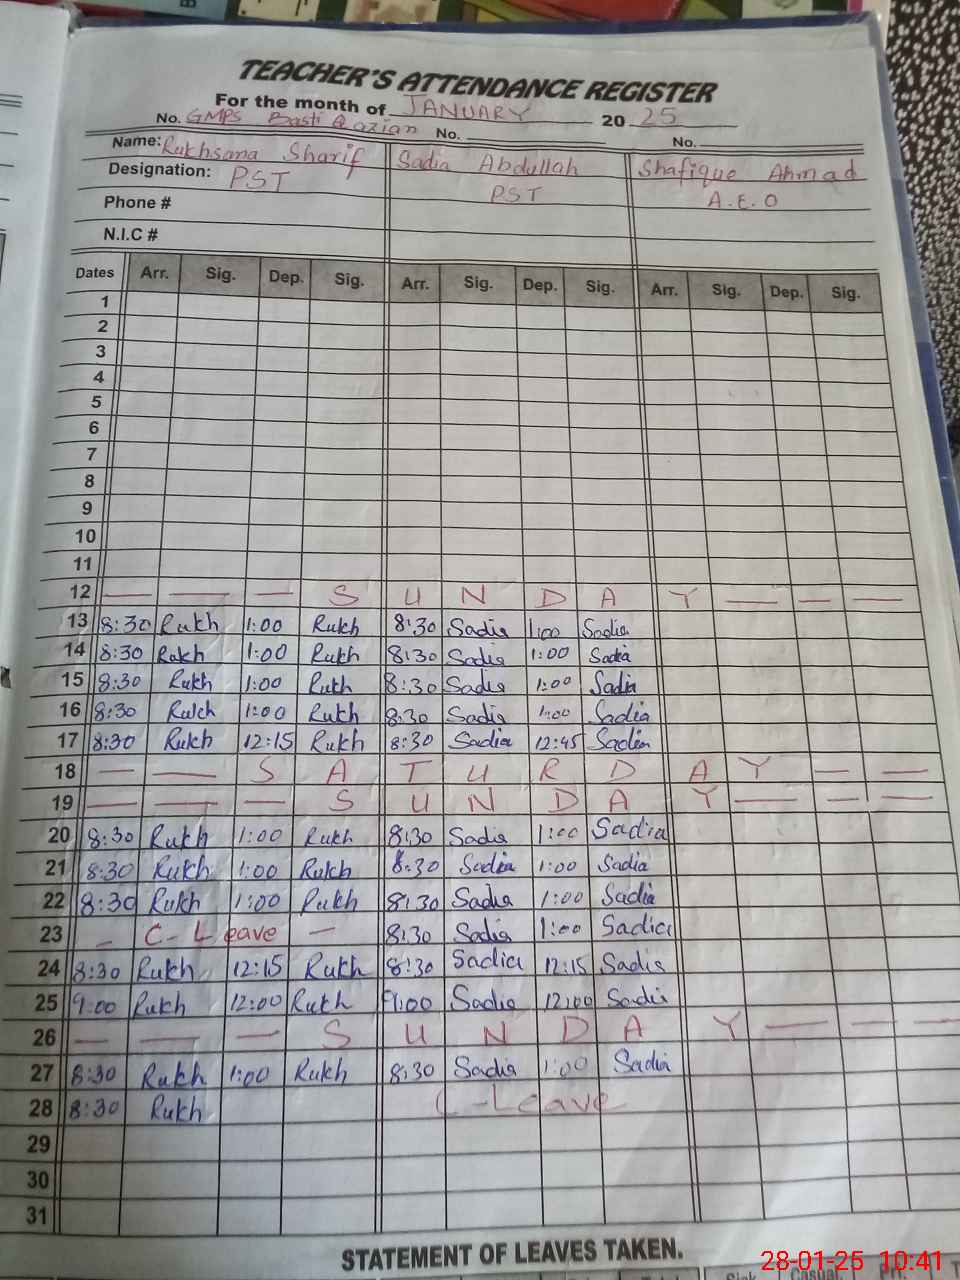 TEACHER'S ATTENDANCE REGISTER
For the month of JANUARY 20 25
No. GMPS Basti Qazian No. No.
Name: Rukhsana Sharif Sadia Abdullah Shafique Ahmad
Designation: PST PST A.E.O
Phone #
N.I.C #
Dates Arr. Sig. Dep. Sig. Arr. Sig. Dep. Sig. Arr. Sig. Dep. Sig.
1
2
3
4
5
6
7
8
9
10
11
12 — — — S U N D A Y — — —
13 8:30 Rukh 1:00 Rukh 8:30 Sadia 1:00 Sadia
14 8:30 Rukh 1:00 Rukh 8:30 Sadia 1:00 Sadia
15 8:30 Rukh 1:00 Rukh 8:30 Sadia 1:00 Sadia
16 8:30 Rukh 1:00 Rukh 8:30 Sadia 1:00 Sadia
17 8:30 Rukh 12:15 Rukh 8:30 Sadia 12:45 Sadia
18 — — S A T U R D A Y — —
19 — — — S U N D A Y — — —
20 8:30 Rukh 1:00 Rukh 8:30 Sadia 1:00 Sadia
21 8:30 Rukh 1:00 Rukh 8:30 Sadia 1:00 Sadia
22 8:30 Rukh 1:00 Rukh 8:30 Sadia 1:00 Sadia
23 — C-Leave — 8:30 Sadia 1:00 Sadia
24 8:30 Rukh 12:15 Rukh 8:30 Sadia 12:15 Sadia
25 9:00 Rukh 12:00 Rukh 9:00 Sadia 12:00 Sadia
26 — — — S U N D A Y — — —
27 8:30 Rukh 1:00 Rukh 8:30 Sadia 1:00 Sadia
28 8:30 Rukh C-Leave
29
30
31
STATEMENT OF LEAVES TAKEN.
28-01-25 10:41
Sick Casual